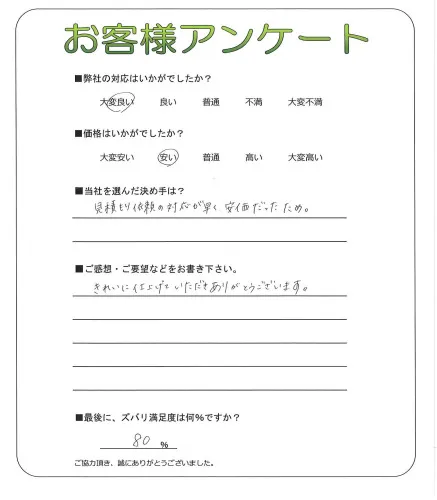 お客様アンケート
■弊社の対応はいかがでしたか？
大変良い 良い 普通 不満 大変不満
■価格はいかがでしたか？
大変安い 安い 普通 高い 大変高い
■当社を選んだ決め手は？
見積もり依頼の対応が早く安価だったため。
■ご感想・ご要望などをお書き下さい。
きれいに仕上げていただきありがとうございます。
■最後に、ズバリ満足度は何％ですか？
80 ％
ご協力頂き、誠にありがとうございました。